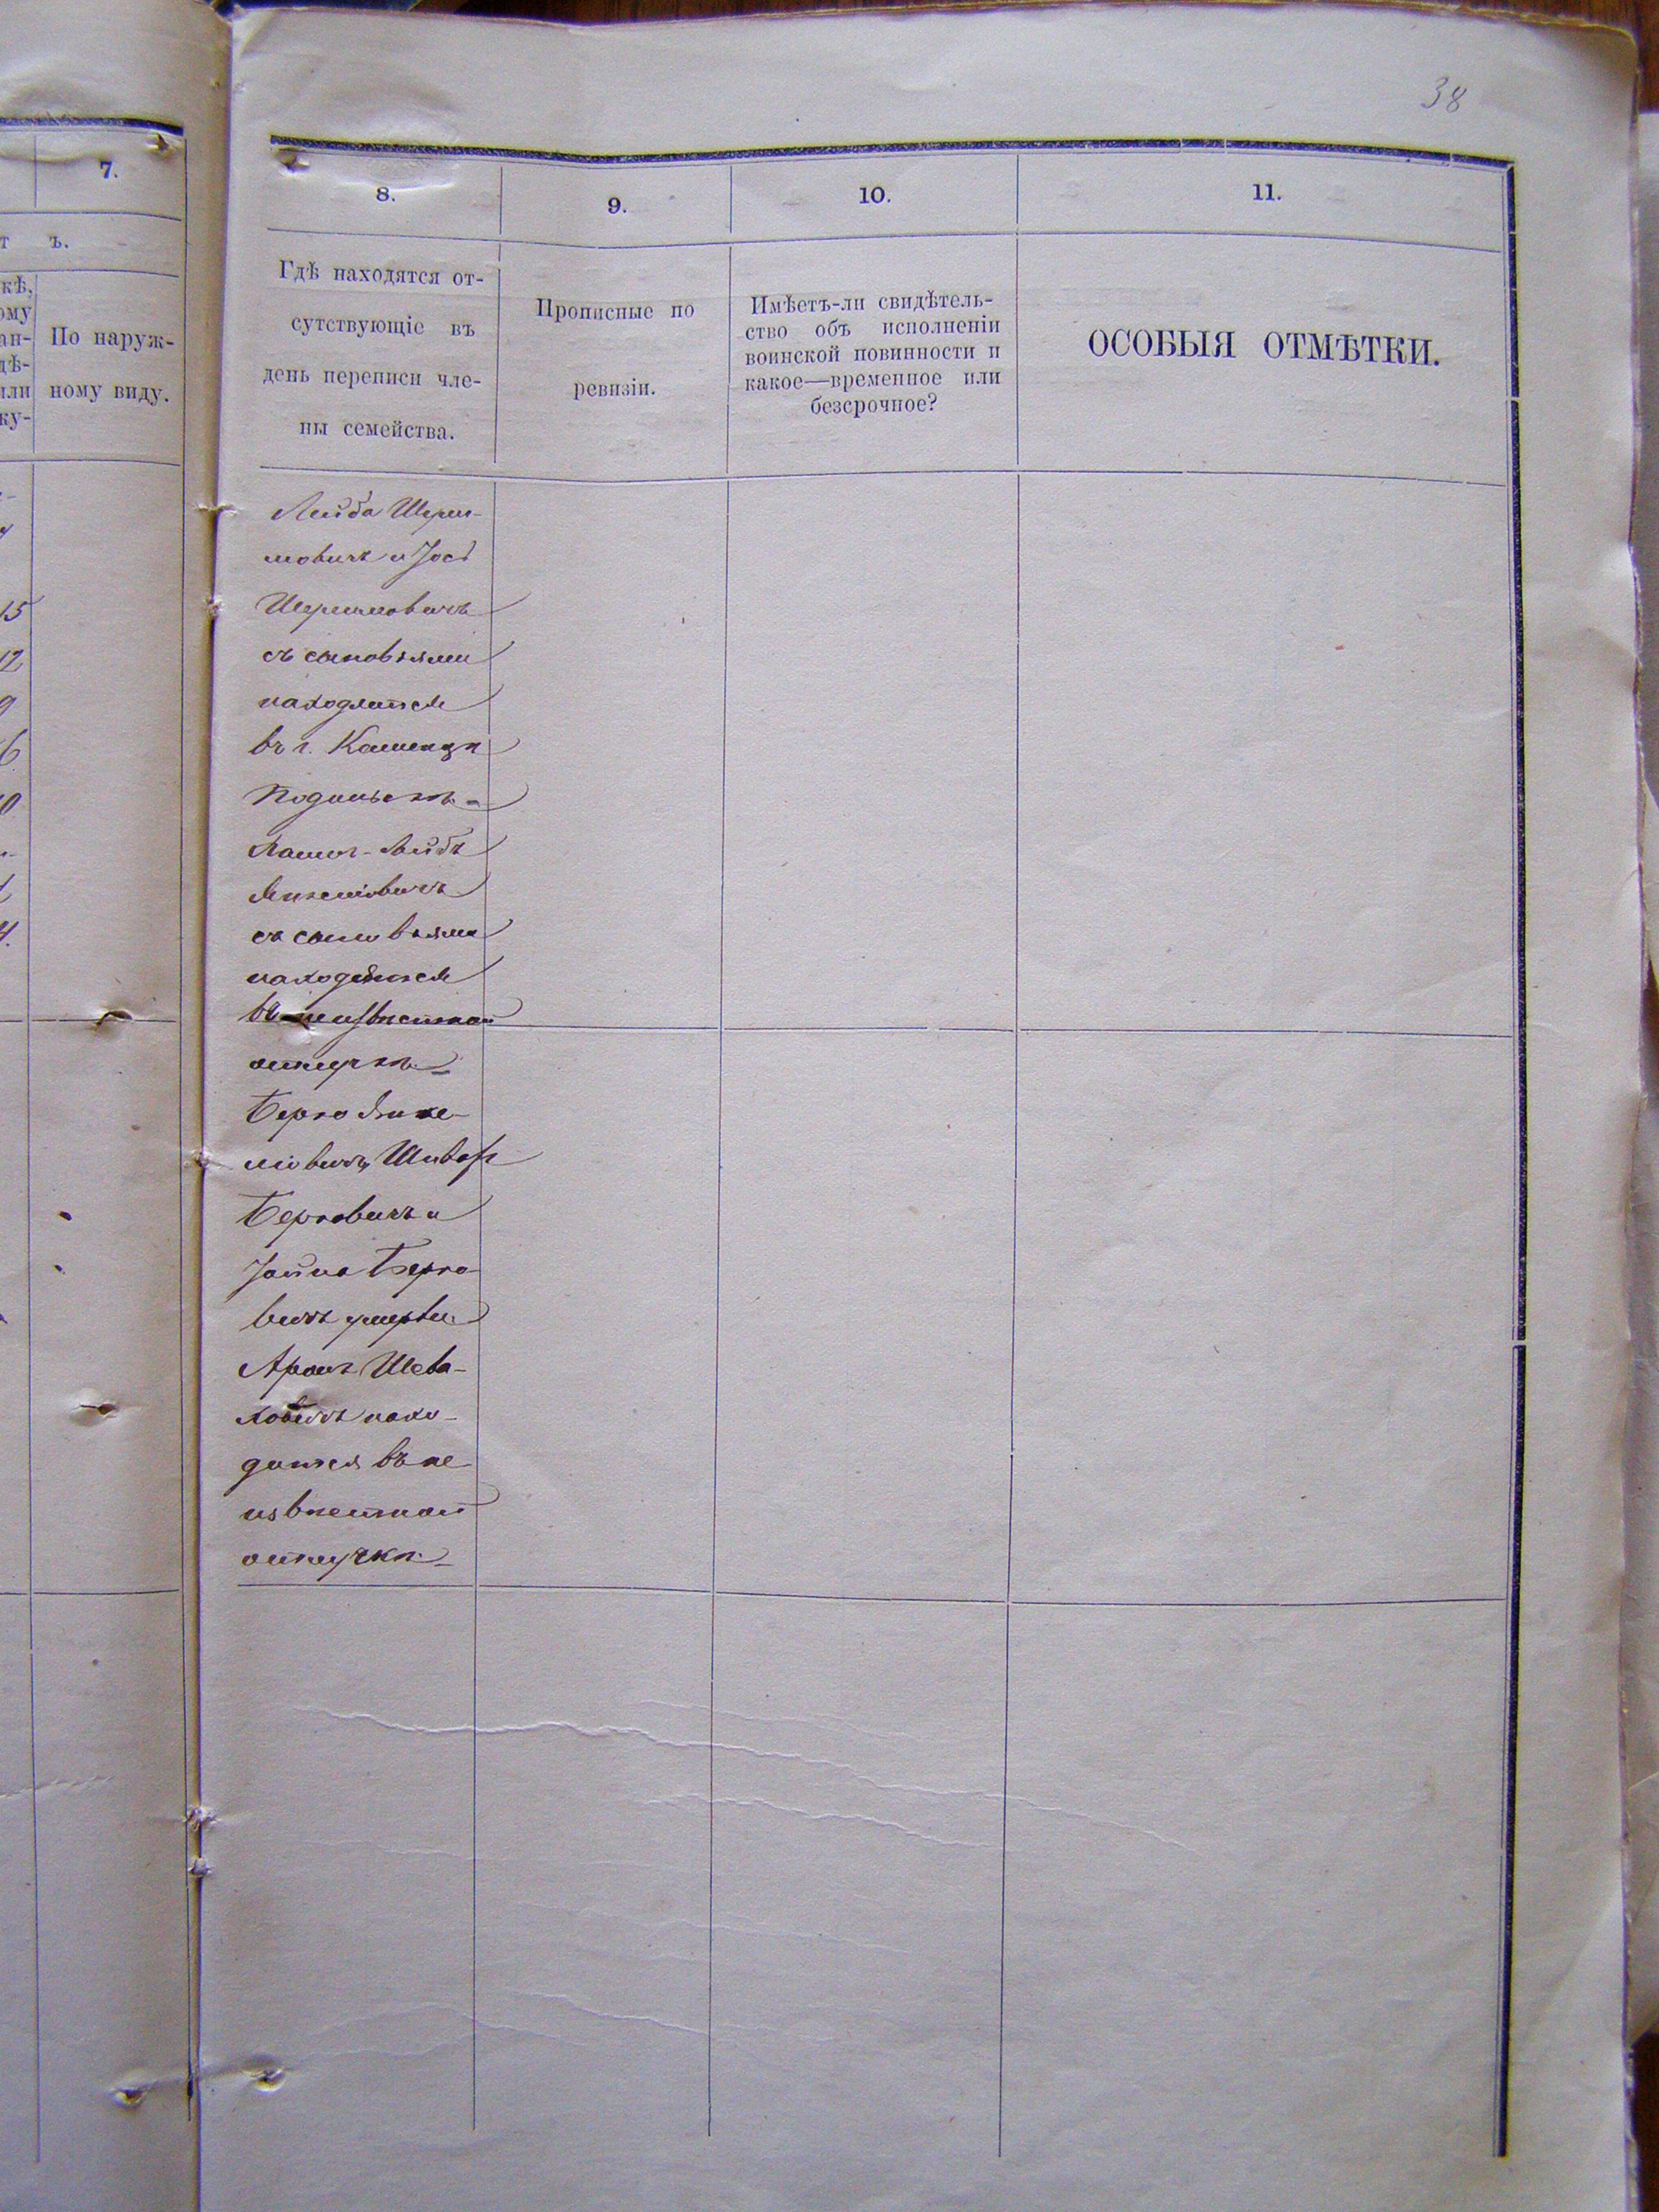 38
7.
т ъ.
кѣ,
ому
ан-
дѣ-
или
ку-
По наруж-
ному виду.
15
12
9
6
0
4.
8.
9.
10.
11.
Гдѣ находятся от-
сутствующіе въ
день переписи чле-
ны семейства.
Прописные по
ревизіи.
Имѣетъ-ли свидѣтель-
ство объ исполненіи
воинской повинности и
какое—временное или
безсрочное?
ОСОБЫЯ ОТМѢТКИ.
Лейба Шерш-
мовичъ и Іосъ
Шершмовичъ
съ сыновьями
находятся
въ г. Каменцѣ
Подольскѣ
Лейбъ
съ сыновьями
находятся
въ неизвѣстной
отлучкѣ
Берко Янке-
левичъ,
Берковичъ и
Іойна Берко-
вичъ умерли.
Аронъ Шева-
ховичъ нахо-
дится въ не
извѣстной
отлучкѣ